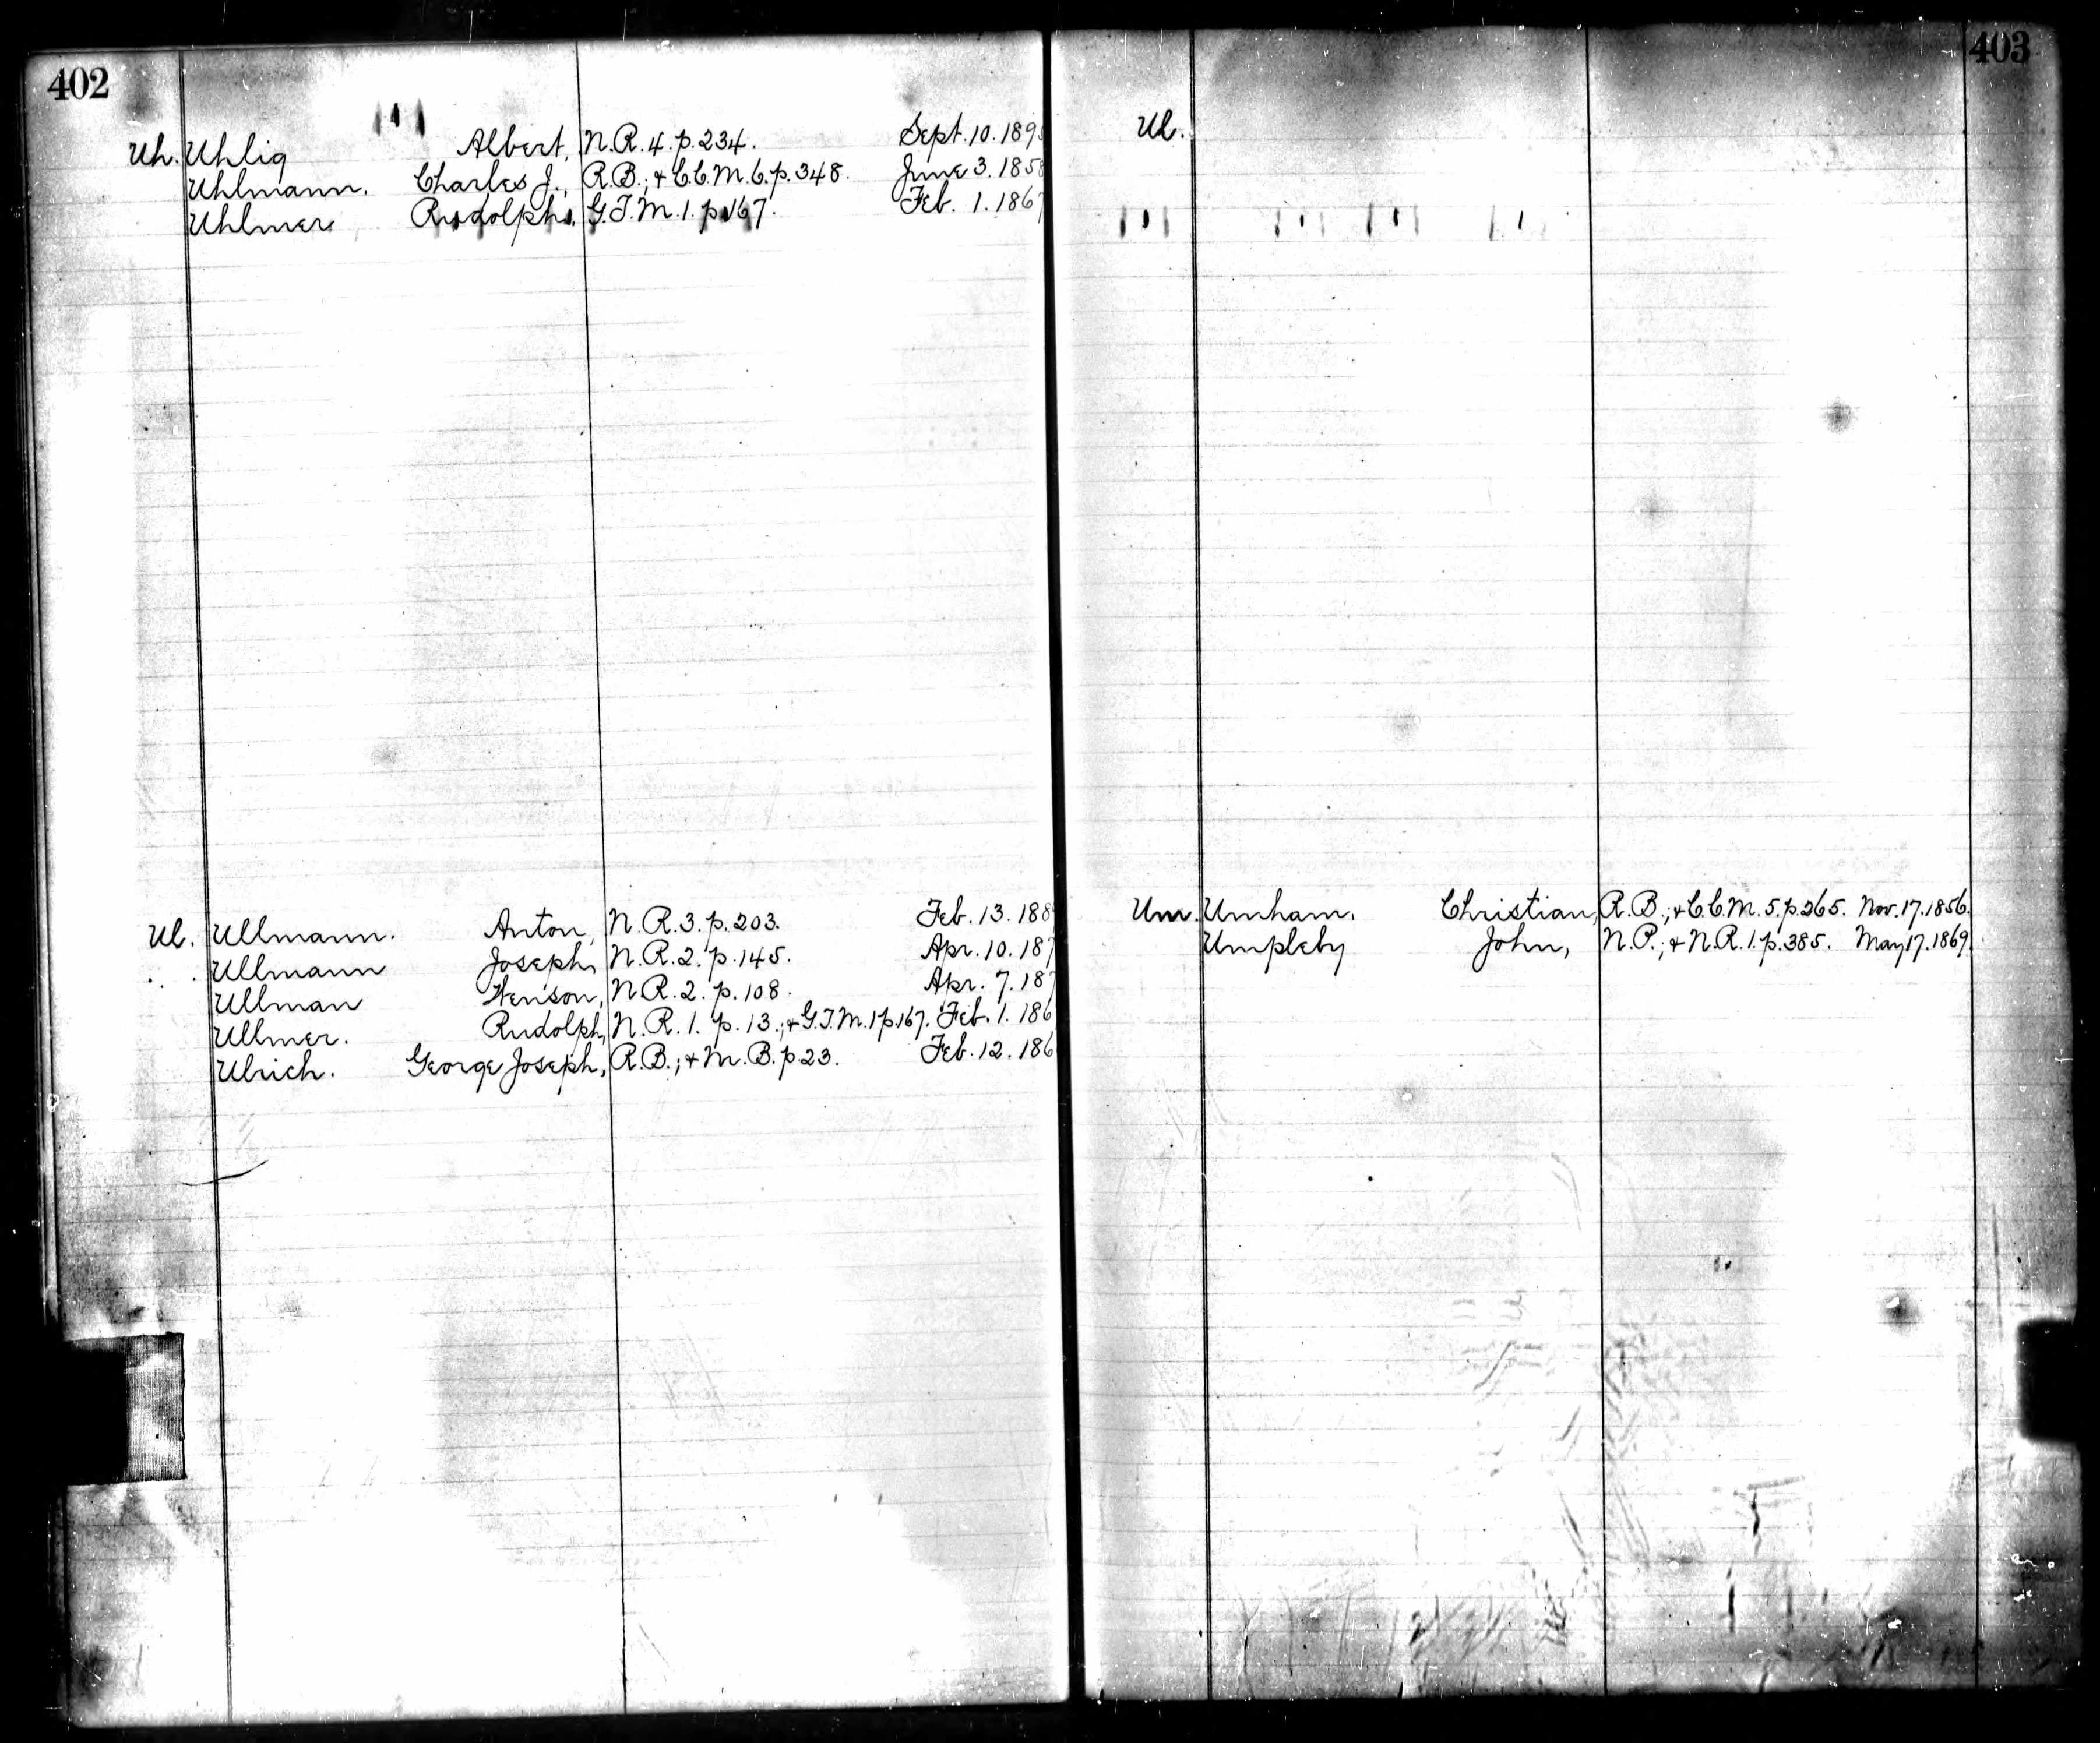 402
Uh. Uhlig Albert, N.R. 4. p. 234. Sept. 10. 189
Uhlmann. Charles J., R.B.; & C.C.M. 6. p. 348. June 3. 1858
Uhlmer Rudolph, G.T.M. 1. p. 167. Feb. 1. 1867
Ul. Ullmann. Anton, N.R. 3. p. 203. Feb. 13. 188
Ullmann Joseph, N.R. 2. p. 145. Apr. 10. 187
Ullman Henson, N.R. 2. p. 108. Apr. 7. 187
Ullmer. Rudolph, N.R. 1. p. 13.; & G.T.M. 1 p. 167. Feb. 1. 186
Ulrich. George Joseph, R.B.; & M.B. p. 23. Feb. 12. 186
403
Ul.
Um. Umham. Christian, R.B.; & C.C.M. 5. p. 265. Nov. 17. 1856.
Umpleby John, N.P.; & N.R. 1. p. 385. May 17. 1869.